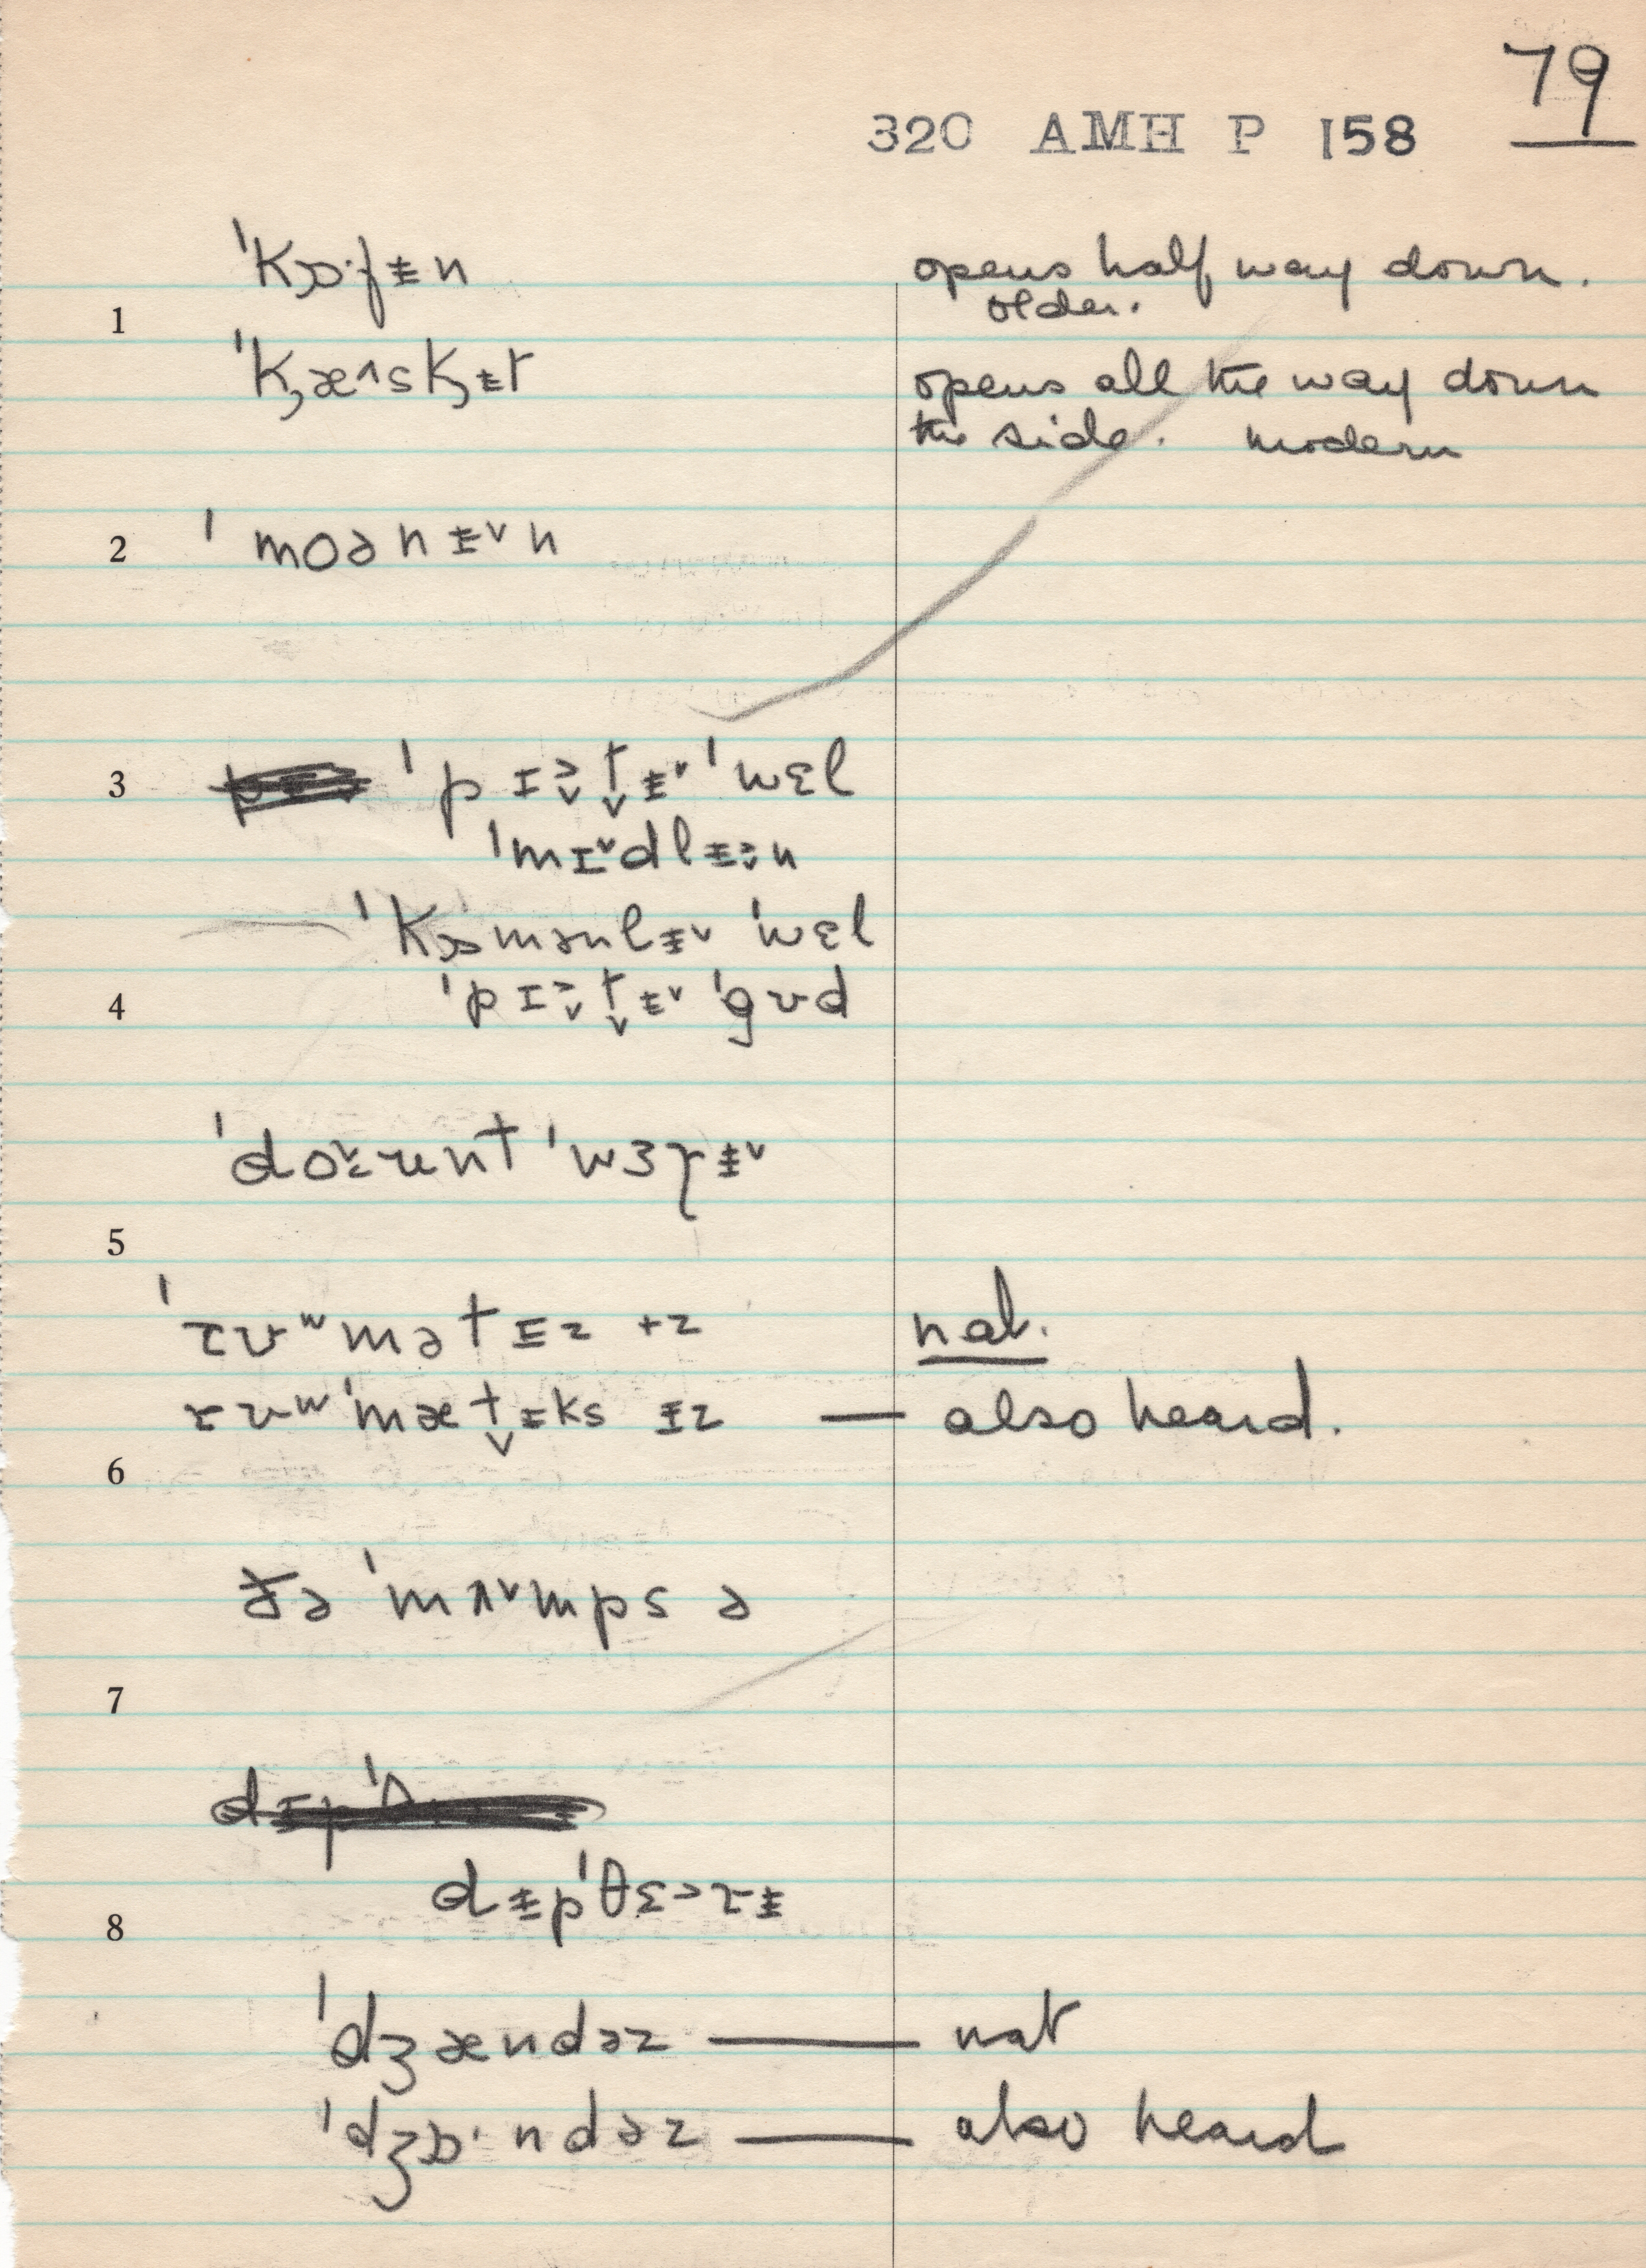 79
320 AMH P 158
ˈkɒ·fɨn opens half way down.
older.
1
ˈkæ^skɨt opens all the way down
the side. modern
2 ˈmoənɨ˅n
3 ˈpɪtɨ˅ ˈwɛl
ˈmɪ˅dlɨn
ˈkɒmənlɨ˅ ˈwɛl
4 ˈpɪtɨ˅ ˈgʊd
ˈdount ˈwɜrɨ˅
5
ˈrʊʷmətɪz +z nat.
rʊʷˈmætɪks ɨz — also heard.
6
ðə ˈmʌ˅mps ə
7
dɨpˈθɛ>rɨ
8
ˈdʒændəz — nat
ˈdʒɒ·ndəz — also heard